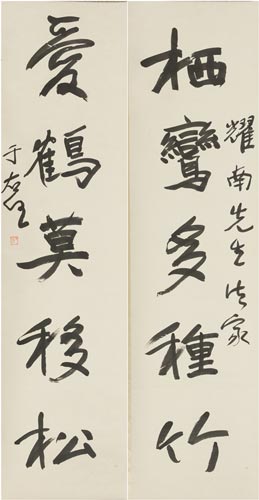 耀南先生法家
栖鸞多種竹
愛鶴莫移松
于右任